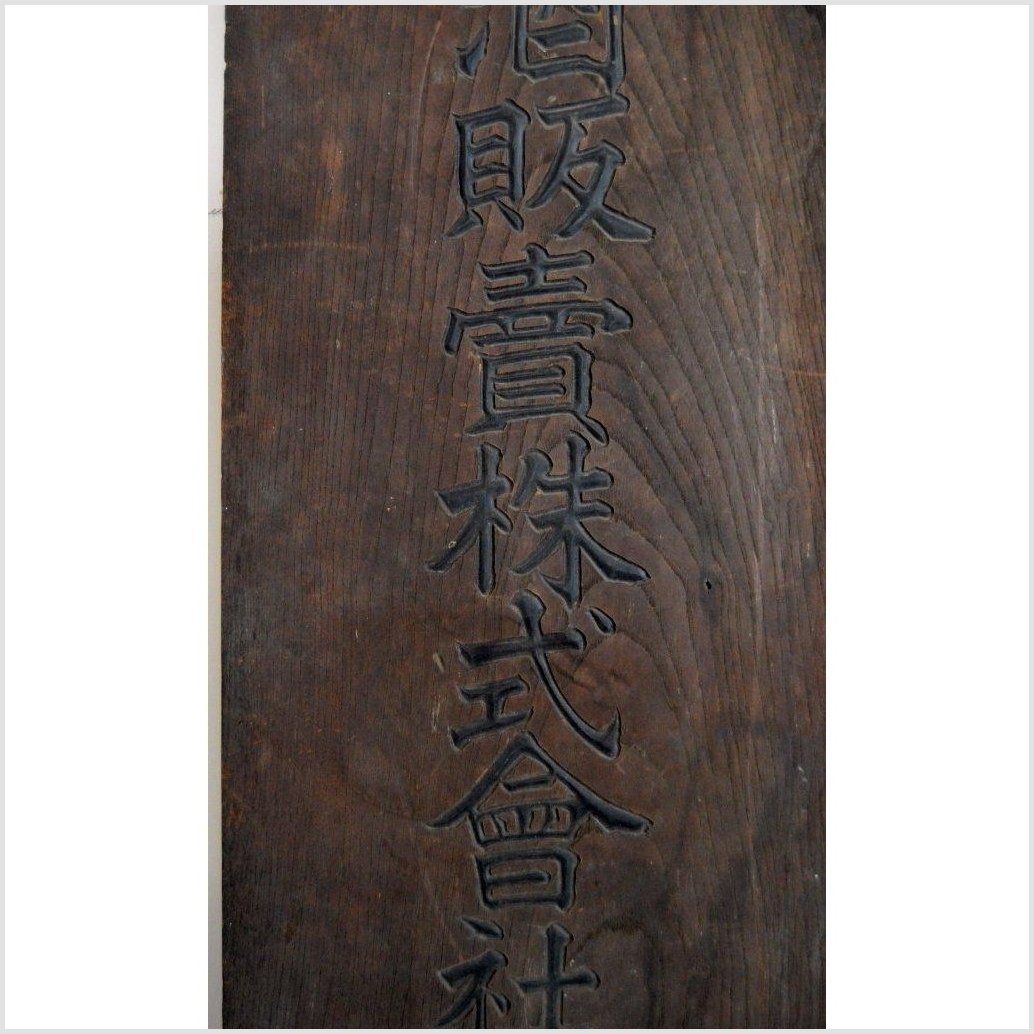 酒販賣株式會社